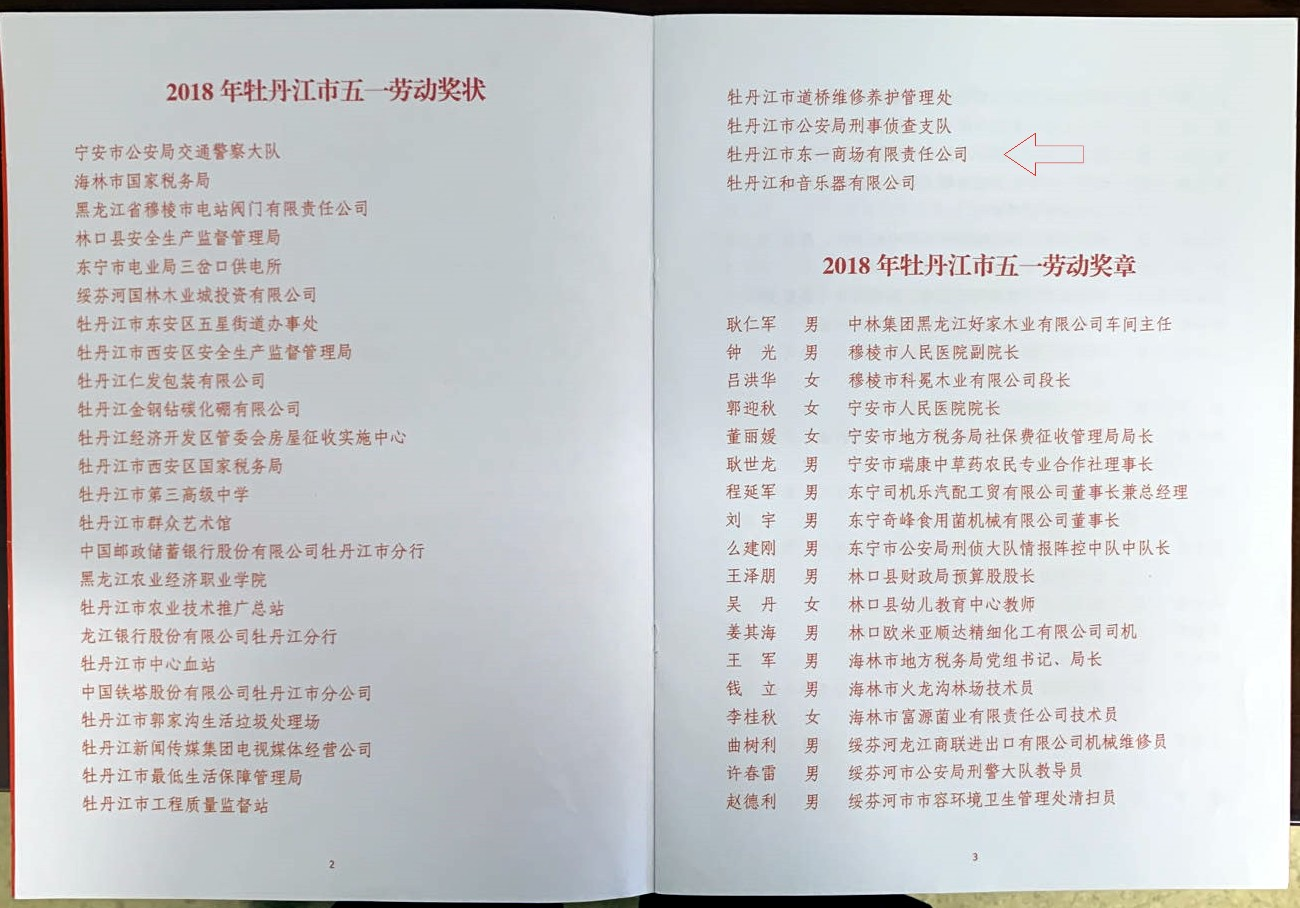 2018 年牡丹江市五一劳动奖状
宁安市公安局交通警察大队
海林市国家税务局
黑龙江省穆棱市电站阀门有限责任公司
林口县安全生产监督管理局
东宁市电业局三岔口供电所
绥芬河国林木业城投资有限公司
牡丹江市东安区五星街道办事处
牡丹江市西安区安全生产监督管理局
牡丹江仁发包装有限公司
牡丹江金钢钻碳化硼有限公司
牡丹江经济开发区管委会房屋征收实施中心
牡丹江市西安区国家税务局
牡丹江市第三高级中学
牡丹江市群众艺术馆
中国邮政储蓄银行股份有限公司牡丹江市分行
黑龙江农业经济职业学院
牡丹江市农业技术推广总站
龙江银行股份有限公司牡丹江分行
牡丹江市中心血站
中国铁塔股份有限公司牡丹江市分公司
牡丹江市郭家沟生活垃圾处理场
牡丹江新闻传媒集团电视媒体经营公司
牡丹江市最低生活保障管理局
牡丹江市工程质量监督站
2
牡丹江市道桥维修养护管理处
牡丹江市公安局刑事侦查支队
牡丹江市东一商场有限责任公司
牡丹江和音乐器有限公司
2018 年牡丹江市五一劳动奖章
耿仁军 男 中林集团黑龙江好家木业有限公司车间主任
钟 光 男 穆棱市人民医院副院长
吕洪华 女 穆棱市科冕木业有限公司段长
郭迎秋 女 宁安市人民医院院长
董丽媛 女 宁安市地方税务局社保费征收管理局局长
耿世龙 男 宁安市瑞康中草药农民专业合作社理事长
程延军 男 东宁司机乐汽配工贸有限公司董事长兼总经理
刘 宇 男 东宁奇峰食用菌机械有限公司董事长
么建刚 男 东宁市公安局刑侦大队情报阵控中队中队长
王泽朋 男 林口县财政局预算股股长
吴 丹 女 林口县幼儿教育中心教师
姜其海 男 林口欧米亚顺达精细化工有限公司司机
王 军 男 海林市地方税务局党组书记、局长
钱 立 男 海林市火龙沟林场技术员
李桂秋 女 海林市富源菌业有限责任公司技术员
曲树利 男 绥芬河龙江商联进出口有限公司机械维修员
许春雷 男 绥芬河市公安局刑警大队教导员
赵德利 男 绥芬河市市容环境卫生管理处清扫员
3